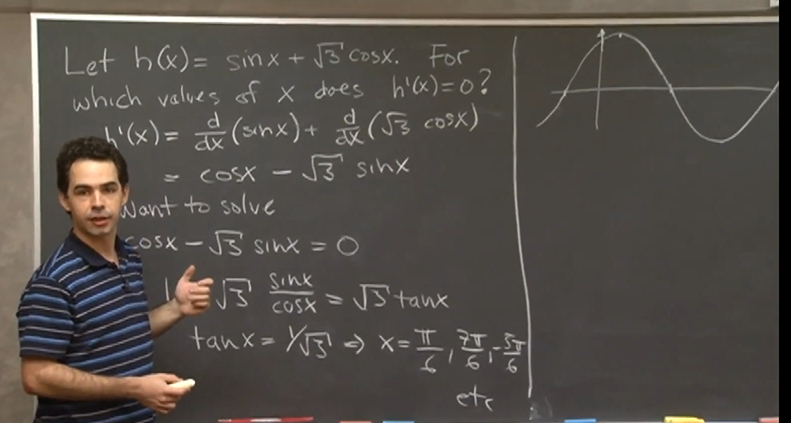 Let h(x) = sinx + √3 cosx. For
which values of x does h'(x)=0?
h'(x) = d/dx (sinx) + d/dx (√3 cosx)
= cosx − √3 sinx
Want to solve
cosx − √3 sinx = 0
√3 sinx/cosx = √3 tanx
tanx = 1/√3 ⇒ x = π/6, 7π/6, -5π/6
etc